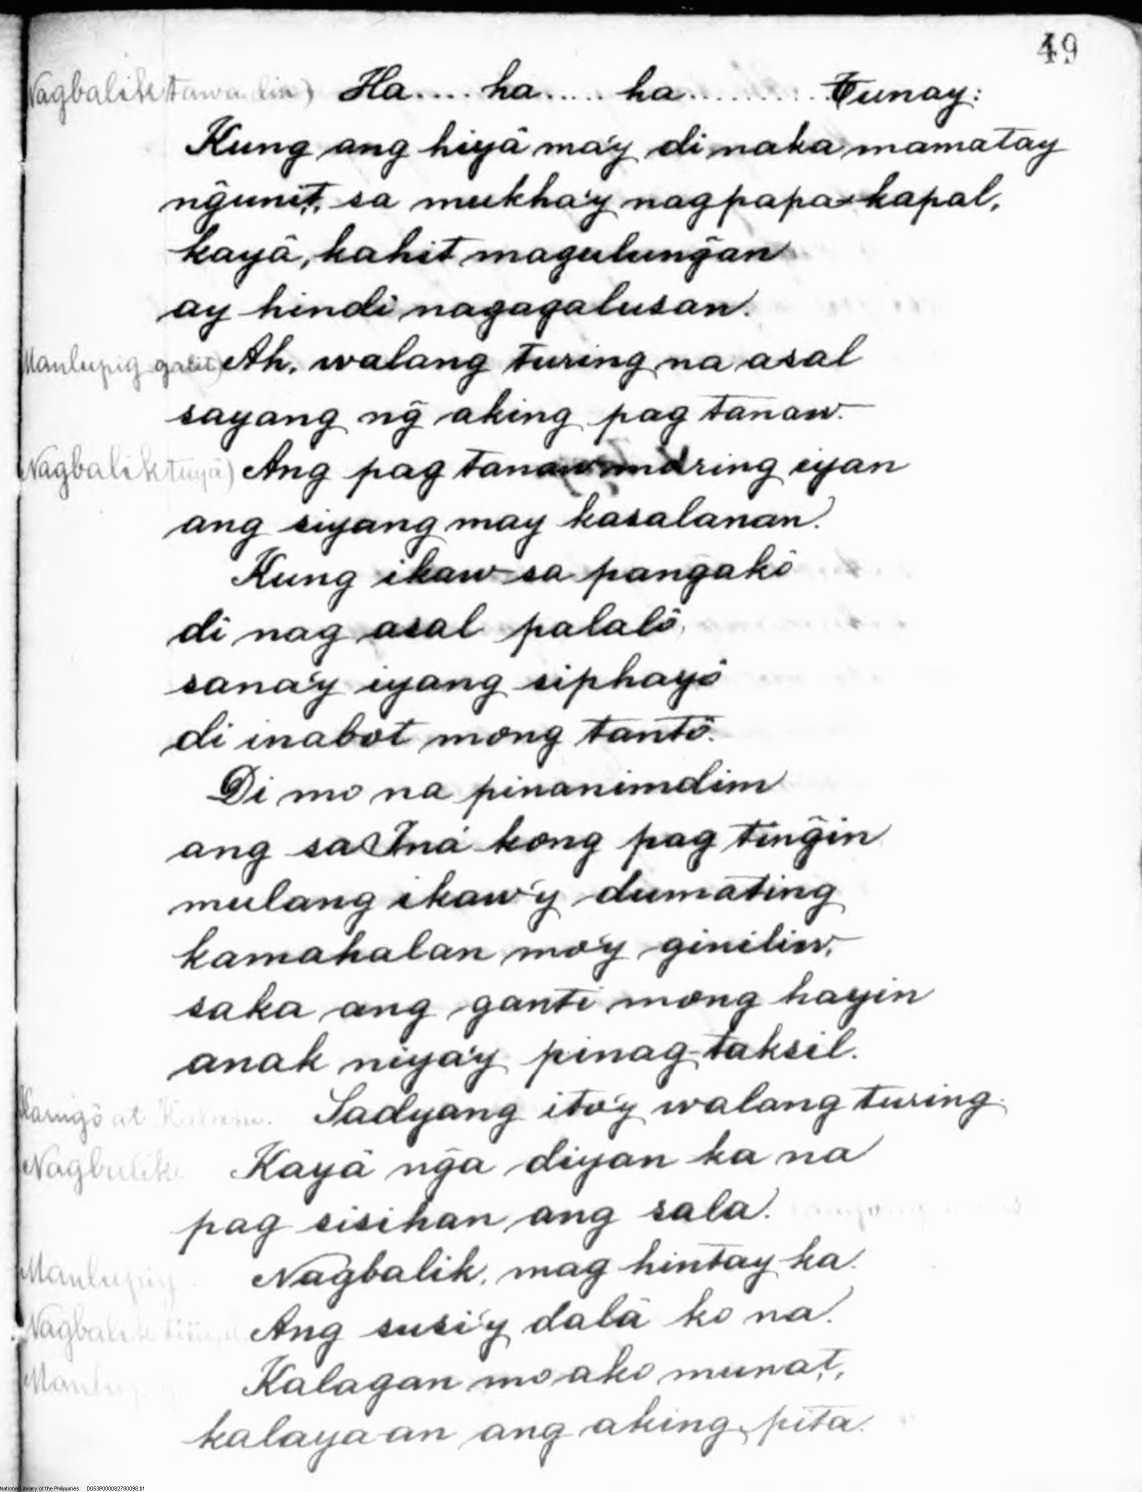 49
Nagbalik tawa Ha.... ha..... ha......... Tunay:
Kung ang hiyâ ma'y di naka mamatay
ng̃unit, sa mukha'y nagpapa-kapal,
kayâ, kahit magulung̃an
ay hindi nagagalusan.
Manlupig galit) Ah, walang turing na asal
sayang ng̃ aking pag tanaw.
Nagbalik tuyâ) Ang pag tanaw maring iyan
ang siyang may kasalanan.
Kung ikaw sa pang̃akô
di nag asal palalô,
sana'y iyang siphayô
di inabot mong tantô.
Di mo na pinanimdim
ang sa Iná kong pag ting̃in
mulang ikaw'y dumating
kamahalan mo'y giniliw,
saka ang ganti mong hayin
anak niya'y pinag-taksil.
at Sadyang ito'y walang turing.
Nagbalik Kayâ ng̃a diyan ka na
pag sisihan ang sala.
Manlupig Nagbalik, mag hintay ka.
Nagbalik Ang susi'y dalá ko na.
Manlupig Kalagan mo ako muna't,
kalayaan ang aking pita.
National Library of the Philippines